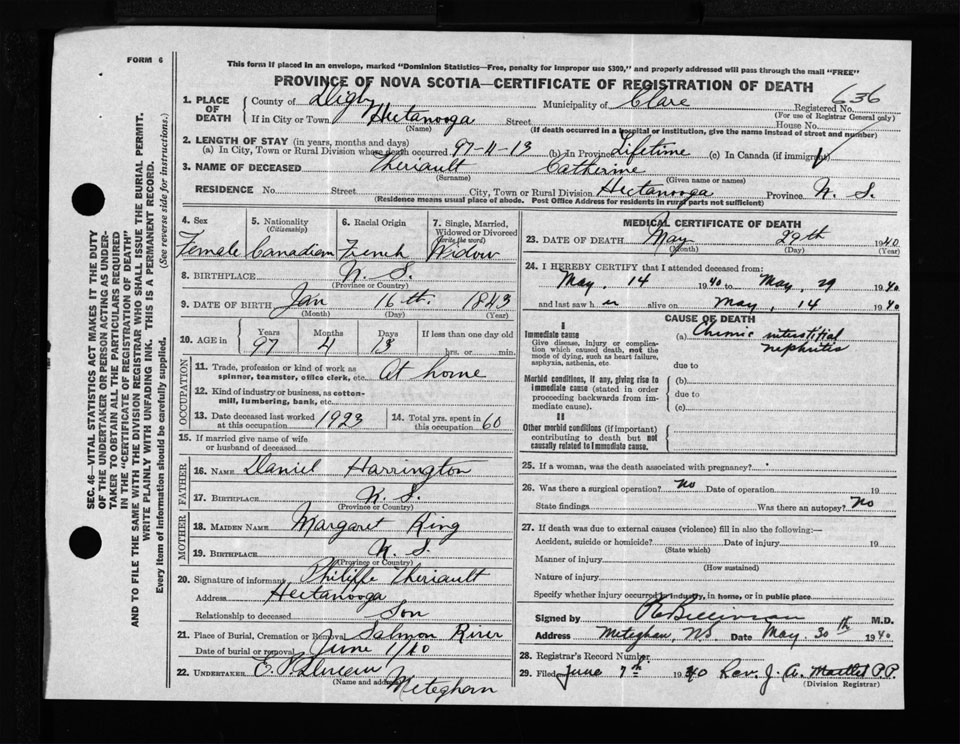 FORM 6
This form if placed in an envelope, marked "Dominion Statistics—Free, penalty for improper use $300," and properly addressed will pass through the mail "FREE"
PROVINCE OF NOVA SCOTIA—CERTIFICATE OF REGISTRATION OF DEATH
1. PLACE OF DEATH County of Digby Municipality of Clare Registered No. 636
(For use of Registrar General only)
If in City or Town Hectanooga Street House No.
(Name) (If death occurred in a hospital or institution, give the name instead of street and number)
2. LENGTH OF STAY (in years, months and days)
(a) In City, Town or Rural Division where death occurred 97-4-13 (b) In Province Lifetime (c) In Canada (if immigrant)
3. NAME OF DECEASED Theriault Catherine
(Surname) (Given name or names)
RESIDENCE No. Street City, Town or Rural Division Hectanooga Province N. S.
(Residence means usual place of abode. Post Office Address for residents in rural parts not sufficient)
4. Sex Female
5. Nationality (Citizenship) Canadian
6. Racial Origin French
7. Single, Married, Widowed or Divorced (Write the word) Widow
8. BIRTHPLACE N. S.
(Province or Country)
9. DATE OF BIRTH Jan 16th. 1843
(Month) (Day) (Year)
10. AGE in Years 97 Months 4 Days 13 If less than one day old hrs. or min.
OCCUPATION
11. Trade, profession or kind of work as spinner, teamster, office clerk, etc. At home
12. Kind of industry or business, as cotton-mill, lumbering, bank, etc.
13. Date deceased last worked at this occupation 1923
14. Total yrs. spent in this occupation 60
15. If married give name of wife or husband of deceased
FATHER
16. NAME Daniel Harrington
17. BIRTHPLACE N. S.
(Province or Country)
MOTHER
18. MAIDEN NAME Margaret King
19. BIRTHPLACE N. S.
(Province or Country)
20. Signature of informant Philippe Theriault
Address Hectanooga
Relationship to deceased Son
21. Place of Burial, Cremation or Removal Salmon River
Date of burial or removal June 1/40
22. UNDERTAKER
(Name and address) Meteghan
MEDICAL CERTIFICATE OF DEATH
23. DATE OF DEATH May 29th 1940
(Month) (Day) (Year)
24. I HEREBY CERTIFY that I attended deceased from:
May, 14 1940 to May, 29 1940
and last saw her alive on May, 14 1940
CAUSE OF DEATH
I
Immediate cause
Give disease, injury or complication which caused death, not the mode of dying, such as heart failure, asphyxia, asthenia, etc.
(a) Chronic interstitial nephritis
due to
Morbid conditions, if any, giving rise to immediate cause (stated in order proceeding backwards from immediate cause).
(b)
due to
(c)
II
Other morbid conditions (if important) contributing to death but not causally related to immediate cause.
25. If a woman, was the death associated with pregnancy?
26. Was there a surgical operation? No Date of operation 19
State findings Was there an autopsy? No
27. If death was due to external causes (violence) fill in also the following:—
Accident, suicide or homicide? Date of injury 19
(State which)
Manner of injury
(How sustained)
Nature of injury
Specify whether injury occurred in industry, in home, or in public place
Signed by M.D.
Address Meteghan, NS Date May. 30th 1940
28. Registrar's Record Number
29. Filed June 7th 1940 Rev. J. A. P.P.
(Division Registrar)
SEC. 46—VITAL STATISTICS ACT MAKES IT THE DUTY
OF THE UNDERTAKER OR PERSON ACTING AS UNDER-
TAKER TO OBTAIN ALL THE PARTICULARS REQUIRED
IN THE "CERTIFICATE OF REGISTRATION OF DEATH"
AND TO FILE THE SAME WITH THE DIVISION REGISTRAR WHO SHALL ISSUE THE BURIAL PERMIT.
WRITE PLAINLY WITH UNFADING INK. THIS IS A PERMANENT RECORD.
Every item of Information should be carefully supplied. (See reverse side for instructions.)